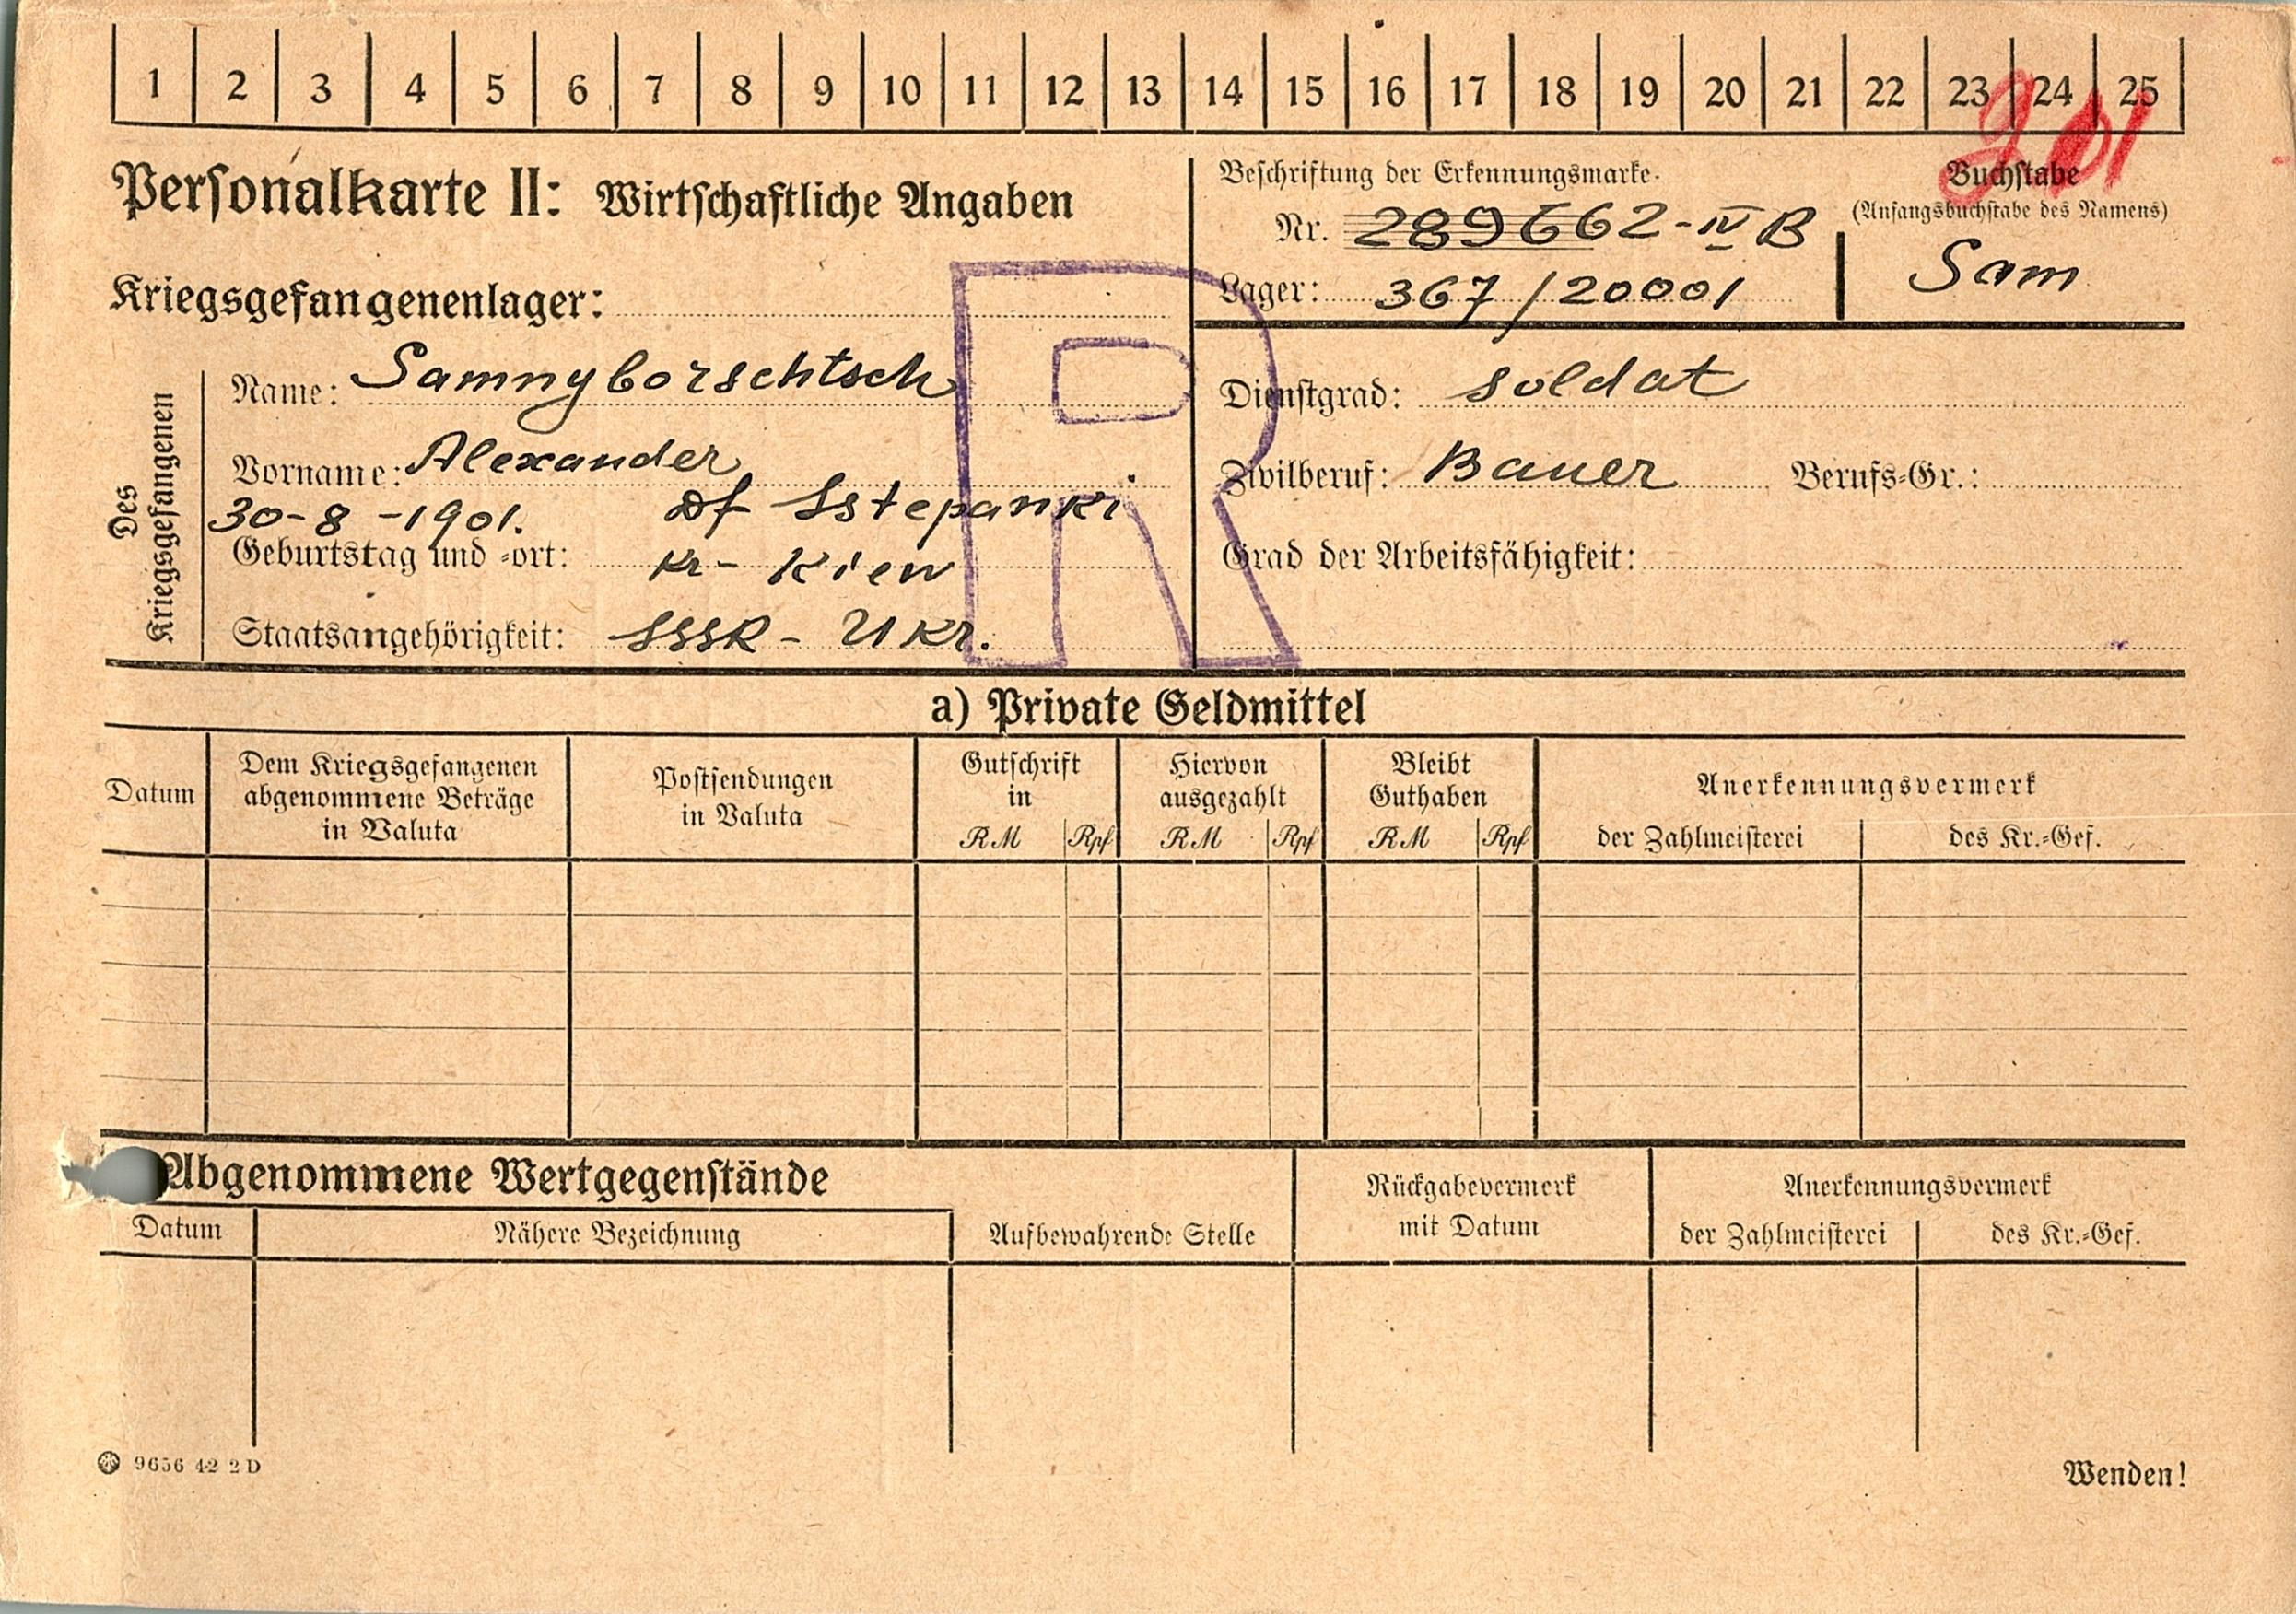 1 2 3 4 5 6 7 8 9 10 11 12 13 14 15 16 17 18 19 20 21 22 23 24 25
Personalkarte II: Wirtschaftliche Angaben
Beschriftung der Erkennungsmarke.
Nr. 289662-IV B
Lager: 367/20001
Buchstabe
(Anfangsbuchstabe des Namens)
Sam
Kriegsgefangenenlager:
R
Des Kriegsgefangenen
Name: Samnyborschtsch
Vorname: Alexander
30-8-1901. Df Sstepanki
Geburtstag und -ort: Kr- Kiew
Staatsangehörigkeit: SSSR - Ukr.
Dienstgrad: Soldat
Zivilberuf: Bauer Berufs-Gr.:
Grad der Arbeitsfähigkeit:
a) Private Geldmittel
Datum
Dem Kriegsgefangenen
abgenommene Beträge
in Valuta
Postsendungen
in Valuta
Gutschrift
in
RM Rpf
Hiervon
ausgezahlt
RM Rpf
Bleibt
Guthaben
RM Rpf
Anerkennungsvermerk
der Zahlmeisterei des Kr.-Gef.
Abgenommene Wertgegenstände
Datum Nähere Bezeichnung Aufbewahrende Stelle
Rückgabevermerk
mit Datum
Anerkennungsvermerk
der Zahlmeisterei des Kr.-Gef.
9656 42 2 D
Wenden!